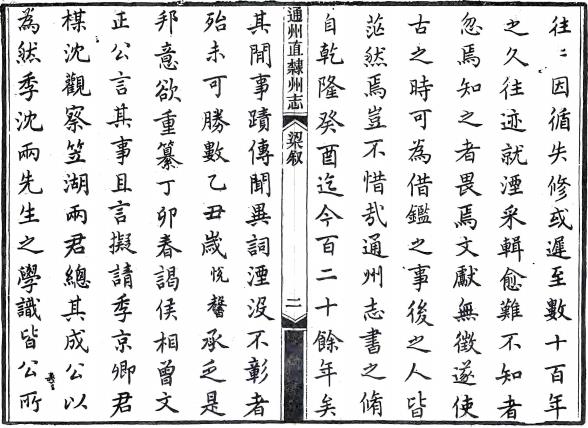 往〻因循失修或遲至數十百年
之久往迹就湮采輯愈難不知者
忽焉知之者畏焉文獻無徵遂使
古之時可為借鑑之事後之人皆
茫然焉豈不惜哉通州志書之脩
自乾隆癸酉迄今百二十餘年矣
通州直隸州志
梁叙
二
其閒事蹟傳聞異詞湮沒不彰者
殆未可勝數乙丑歲悅馨承乏是
邦意欲重纂丁卯春謁侯相曾文
正公言其事且言擬請季京卿君
楳沈觀察笠湖兩君總其成公以
為然季沈兩先生之學識皆公所